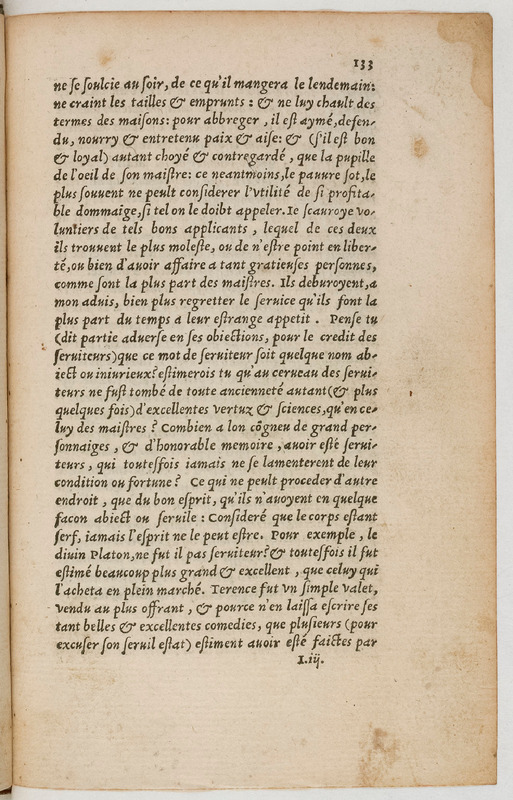 133
ne se soulcie au soir, de ce qu'il mangera le lendemain:
ne craint les tailles & emprunts : & ne luy chault des
termes des maisons: pour abbreger , il est aymé, defen-
du, nourry & entretenu paix & aise: & (s'il est bon
& loyal) autant choyé & contregardé , que la pupille
de l'oeil de son maistre: ce neantmoins, le pauure sot, le
plus souuent ne peult considerer l'vtilité de si profita-
ble dommaige, si tel on le doibt appeler. Ie scauroye vo-
luntiers de tels bons applicants , lequel de ces deux
ils trouuent le plus moleste, ou de n'estre point en liber-
té, ou bien d'auoir affaire a tant gratieuses personnes,
comme sont la plus part des maistres. Ils deburoyent, a
mon aduis, bien plus regretter le seruice qu'ils font la
plus part du temps a leur estrange appetit . Pense tu
(dit partie aduerse en ses obiections, pour le credit des
seruiteurs) que ce mot de seruiteur soit quelque nom ab-
iect ou iniurieux? estimerois tu qu'au cerueau des serui-
teurs ne fust tombé de toute ancienneté autant (& plus
quelques fois) d'excellentes vertuz & sciences, qu'en ce-
luy des maistres ? Combien a lon cõgneu de grand per-
sonnaiges , & d'honorable memoire , auoir esté serui-
teurs , qui toutesfois iamais ne se lamenterent de leur
condition ou fortune ? Ce qui ne peult proceder d'autre
endroit , que du bon esprit, qu'ils n'auoyent en quelque
facon abiect ou seruile : Consideré que le corps estant
serf, iamais l'esprit ne le peut estre. Pour exemple , le
diuin Platon, ne fut il pas seruiteur? & toutesfois il fut
estimé beaucoup plus grand & excellent , que celuy qui
l'acheta en plein marché. Terence fut vn simple valet,
vendu au plus offrant , & pource n'en laissa escrire ses
tant belles & excellentes comedies, que plusieurs (pour
excuser son seruil estat) estiment auoir esté faictes par
I.iij.